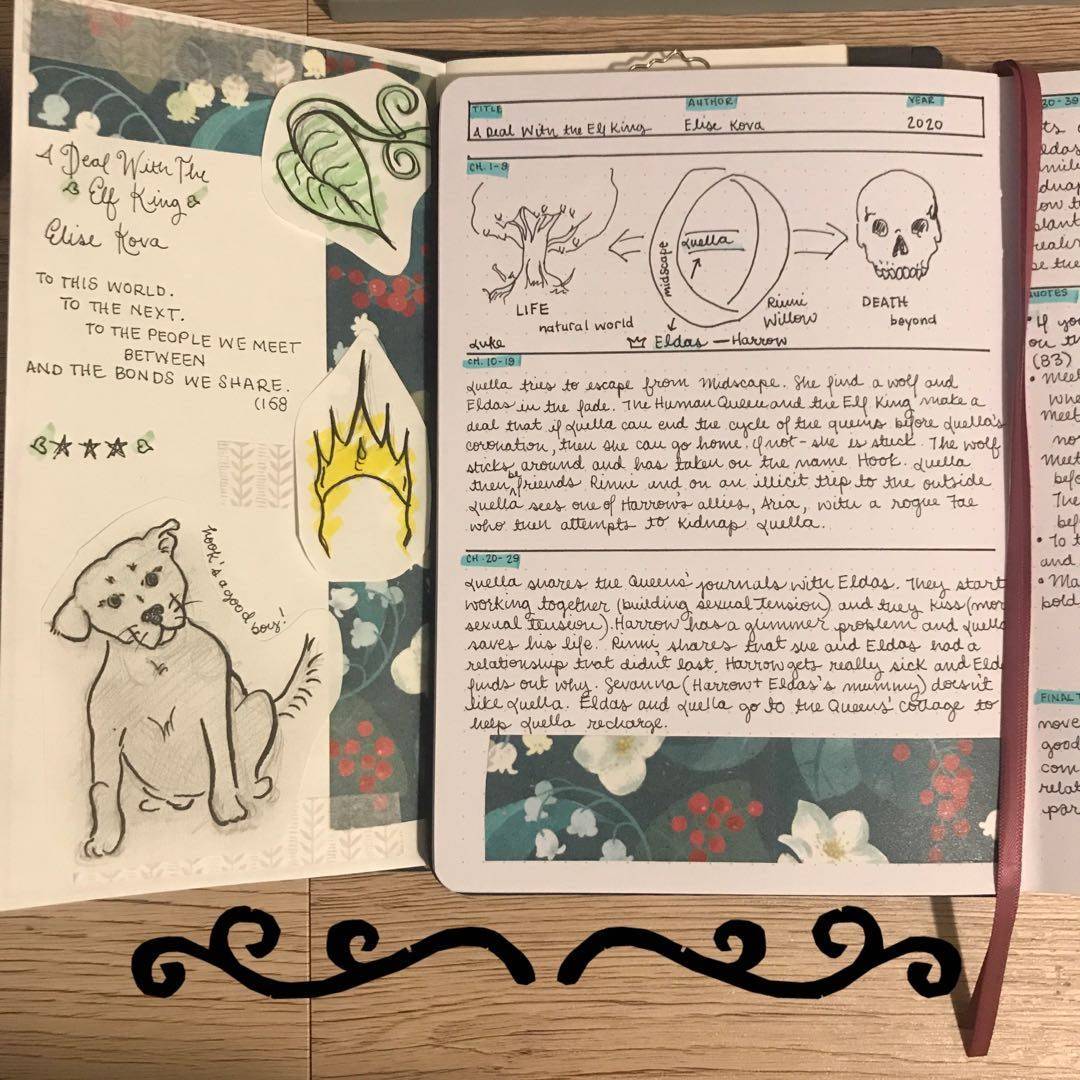 A Deal With The
Elf King
Elise Kova
TO THIS WORLD.
TO THE NEXT.
TO THE PEOPLE WE MEET
BETWEEN
AND THE BONDS WE SHARE.
(168
hook's a good boy!
TITLE
AUTHOR
YEAR
A Deal With the Elf King
Elise Kova
2020
CH. 1-9
midscape
Luella
LIFE
natural world
Rinni
Willow
DEATH
beyond
Luke
Eldas — Harrow
CH. 10-19
Luella tries to escape from Midscape. She find a wolf and
Eldas in the fade. The Human Queen and the Elf King make a
deal that if Luella can end the cycle of the queens before Luella's
coronation, then she can go home. if not - she is stuck. The wolf
sticks around and has taken on the name Hook. Luella
then be friends Rinni and on an illicit trip to the outside
Luella sees one of Harrow's allies, Aria, with a rogue Fae
who then attempts to kidnap Luella.
CH. 20-29
Luella shares the Queens' journals with Eldas. They start
working together (building sexual tension) and they kiss (mor
sexual tension). Harrow has a glimmer problem and Luella
saves his life. Rinni shares that she and Eldas had a
relationship that didn't last. Harrow gets really sick and Elda
finds out why. Sevanna (Harrow + Eldas's mummy) doesn't
like Luella. Eldas and Luella go to the Queens' cottage to
help Luella recharge.
30-39
QUOTES
• If you
on th
(83)
• Meet
whe
meet
no
meet
bef
The
bef
• To t
and
• Ma
bold
FINAL T
nove
good
com
relat
par